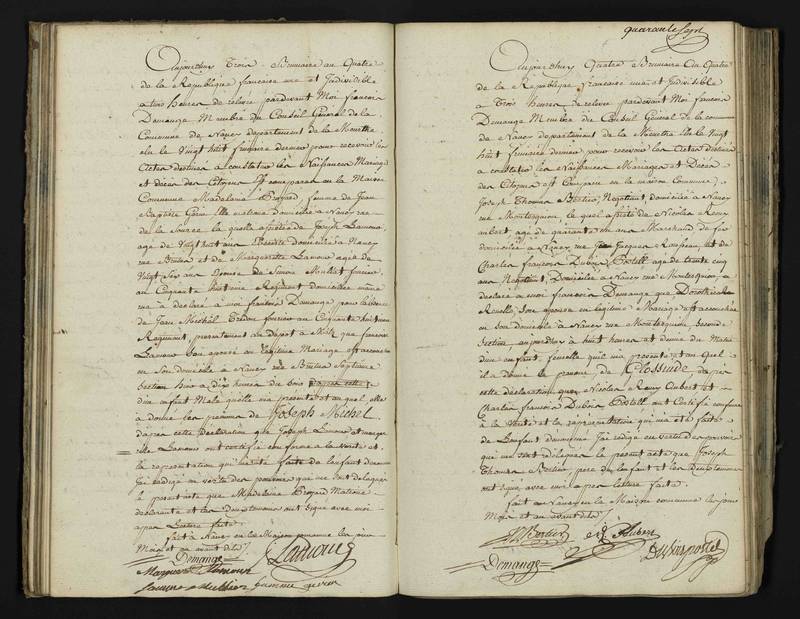 Aujourd'huy Trois Brumaire an Quatre
de la Republique francaise une et Indivisible
a trois heures de relevé pardevant Moi francois
Demange Membre du Conseil General de la
Commune de Nancy departement de la Meurthe
elu le Vingt huit frimaire dernier pour recevoir les
Actes destinés a constater les Naissances Mariages
et décès des Citoyens Est comparue en la Maison
Commune Madelaine femme de Jean
Baptiste domiciliée a Nancy rue
de la Source la quelle assistée de Joseph Lamour
agé de Vingt huit ans domicilié a Nancy
rue et de Marguerite Lamour agée de
Vingt six ans Epouse de Simon Mulliet fourrier
au Cinquante huitieme Regiment domiciliée même
rue a déclaré a moi francois Demange pour l'absence
de Jean Michel fourrier au Cinquante huitieme
Regiment, presentement au depot a Metz que francoise
Lamour son epouse en legitime Mariage est accouchée
en son domicile a Nancy rue Septieme
Section hier a dix heures du soir
d'un enfant Male qu'elle m'a présenté et au quel elle
a donné les prenoms de Joseph Michel
d'après cette Déclaration que Joseph Lamour et Margue-
rite Lamour ont certifié conforme a la Verité et
la représentation qui m'a été faite de l'enfant denommé
J'ai redigé en vertu des pouvoirs qui me sont delegués
le present acte que Madelaine Matrone
declarante et les Deux temoins ont signé avec moi
apres Lecture faite
fait a Nancy en la Maison commune les jour
Mois et an avant dits
Demange Lamour
Marguerite Lamour
femme

quarante Sept
Aujourd'huy Quatre Brumaire an Quatre
de la Republique francaise une et Indivisible
a Trois heures de relevée pardevant Moi francois
Demange Membre du Conseil General de la commune
de Nancy departement de la Meurthe élu le Vingt
huit frimaire dernier pour recevoir les Actes destinés
a constater les Naissances Mariages et Décès
des Citoyens est Comparu en la maison Commune
Joseph Thomas Bertier, Negotiant, domicilié a Nancy
rue Montesquieu le quel assisté de Nicolas Remy
aubert agé de quarante ans Marchand de fer
domicilié a Nancy rue Jean Jacques Rousseau, et de
Charles francois Dubois agé de trente cinq
ans Negotiant, Domicilié a Nancy rue Montesquieu, a
déclaré a moi francois Demange que Dorothée
son epouse en legitime Mariage est accouchée
en son domicile a Nancy rue Montesquieu Seconde
Section, aujourd'huy a huit heures et demie du Matin
d'un enfant femelle qu'il m'a présenté et au quel
il a donné le prenom de Glossinde, d'après
cette déclaration que Nicolas Remy Aubert et
Charles francois Dubois ont Certifié conforme
à la Verité et la représentation qui m'a été faite
de L'enfant denommé j'ai redigé en vertu des pouvoirs
qui me sont délégués le présent acte que Joseph
Thomas Bertier, pere de l'enfant et les Deux temoins
ont signé avec moi apres lecture faite
fait a Nancy en la Maison commune les jour
Mois et an avant dits
Bertier Aubert
Demange